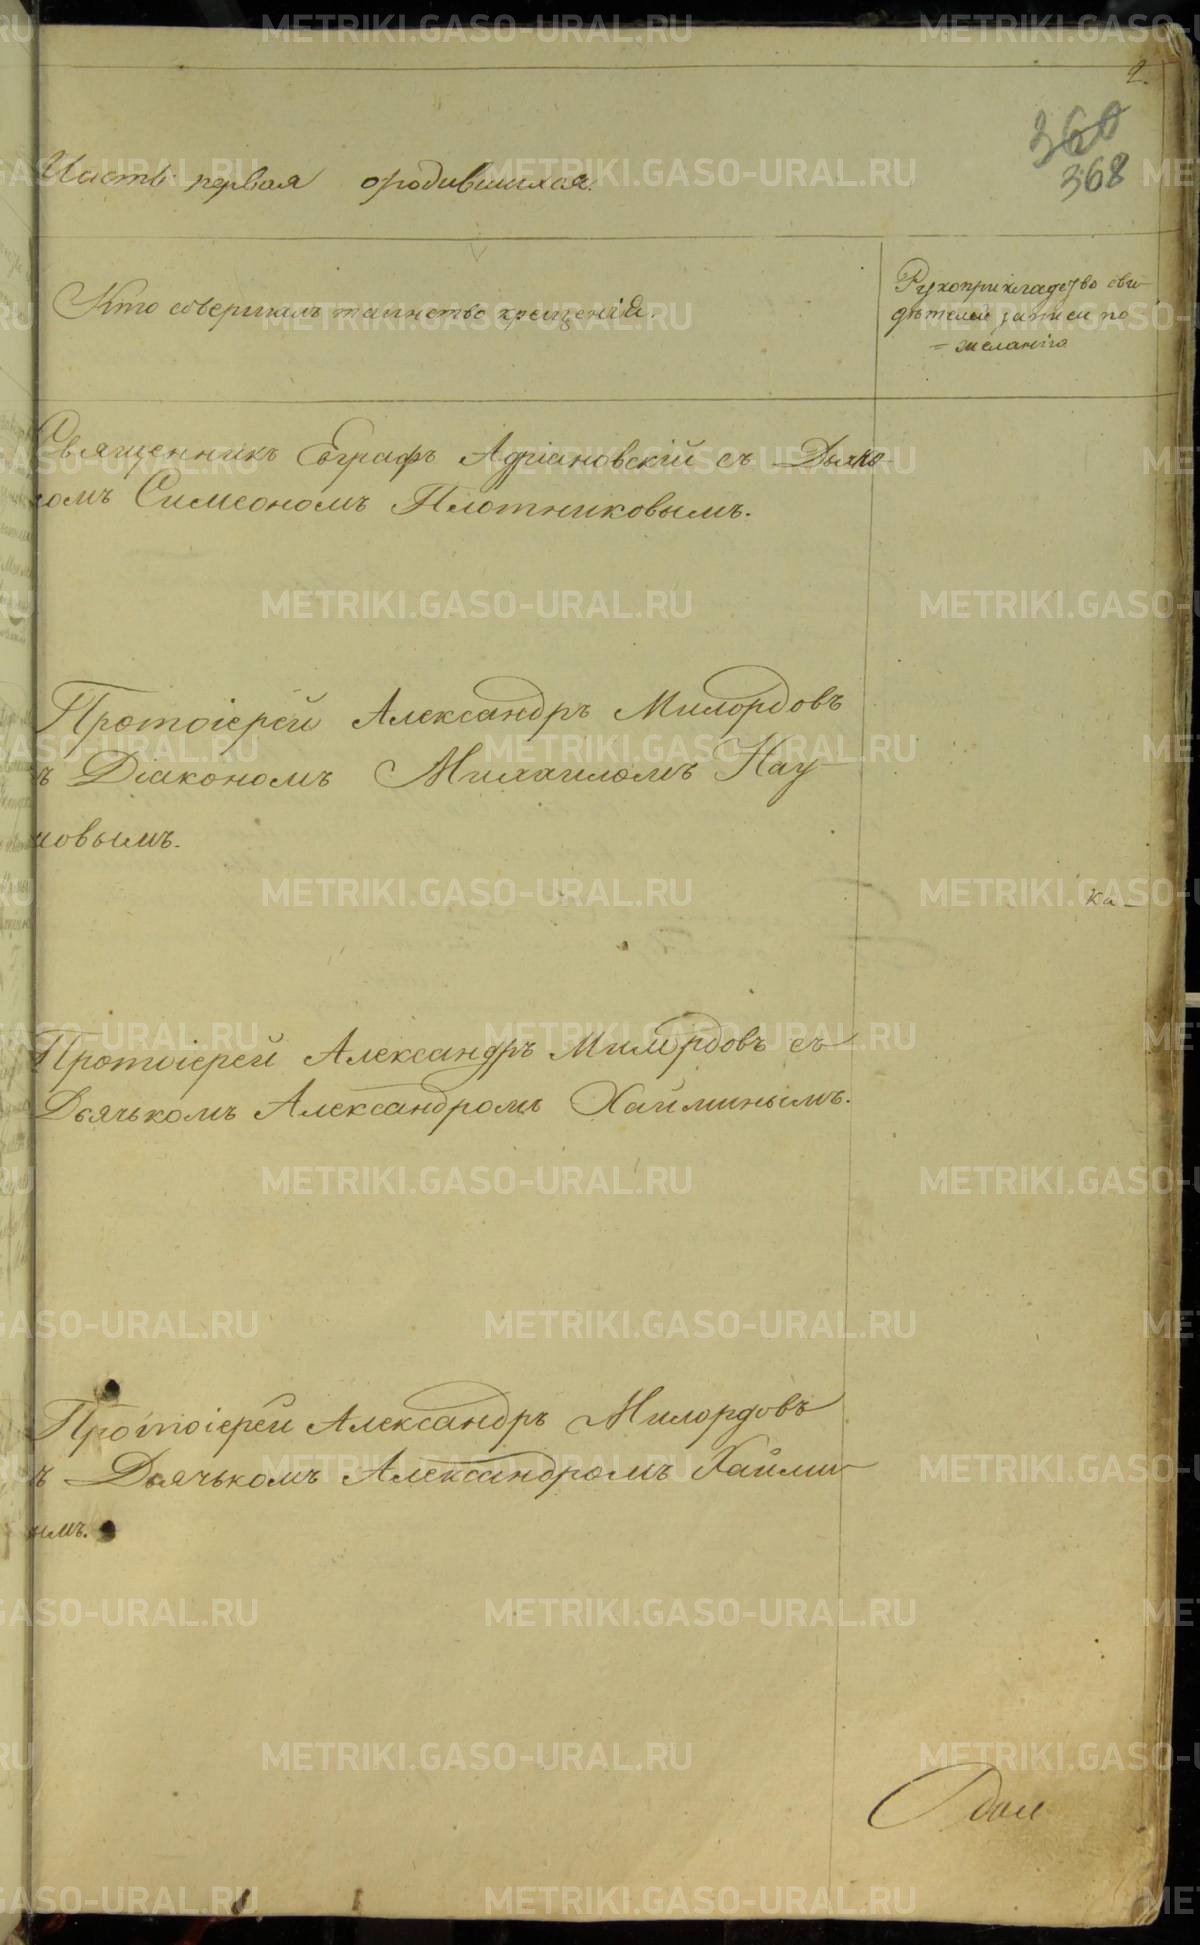 2.
360
368
Часть первая о родившихся.
Кто совершалъ таинство крещенія.
Рукоприкладство сви-
дѣтелей записи по
= желанію
Священникъ Евграфъ Адріановскій съ Дьячь-
комъ Симеономъ Плотниковымъ.
Протоіерей Александръ Милордовъ
ъ Діакономъ Михаиломъ Нау-
мовымъ.
Ка-
Протоіерей Александръ Милордовъ съ
Дьячькомъ Александромъ Хайминымъ.
Протоіерей Александръ Милордовъ
ъ Дьячькомъ Александромъ Хайми-
нымъ.
METRIKI.GASO-URAL.RU